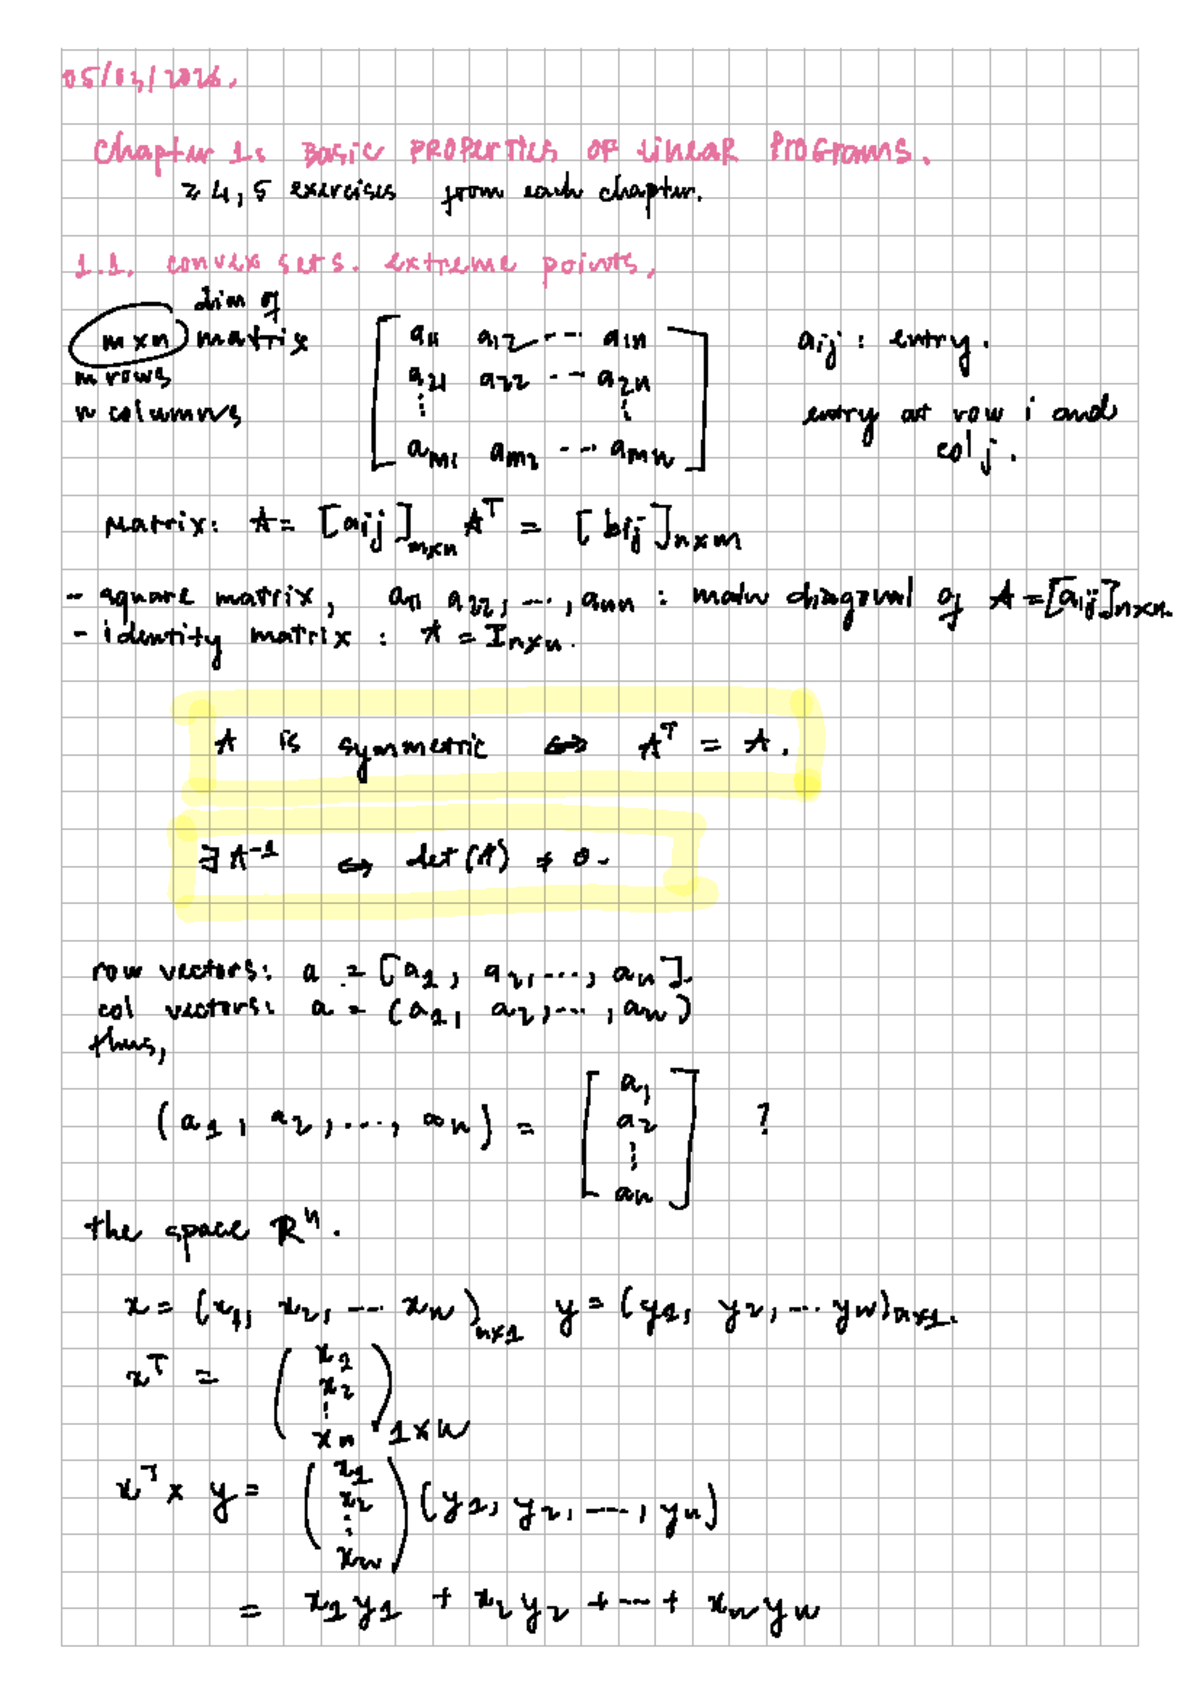 05/03/2026.
Chapter 1: Basic Properties of Linear Programs.
≥ 4, 5 exercises from each chapter.
1.1. convex sets. extreme points.
dim of
m×n matrix
m rows
n columns
[ a11 a12 ... a1n
a21 a22 ... a2n
⋮ ⋮
am1 am2 ... amn ]
aij : entry.
entry at row i and
col j.
Matrix: A = [aij]m×n A^T = [bij]n×m
- square matrix, a11 a22, ..., ann : main diagonal of A = [aij]n×n.
- identity matrix : A = In×n.
A is symmetric ⇔ A^T = A.
∃ A^-1 ⇔ det(A) ≠ 0.
row vectors: a = [a1, a2, ..., an].
col vectors: a = (a1, a2, ..., an)
thus,
(a1, a2, ..., an) = [ a1
a2
⋮
an ] ?
the space R^n.
x = (x1, x2, ... xn)n×1 y = (y1, y2, ... yn)n×1.
x^T = ( x1
x2
⋮
xn )1×n
x^T × y = ( x1
x2
⋮
xn ) (y1, y2, ..., yn)
= x1y1 + x2y2 + ... + xnyn